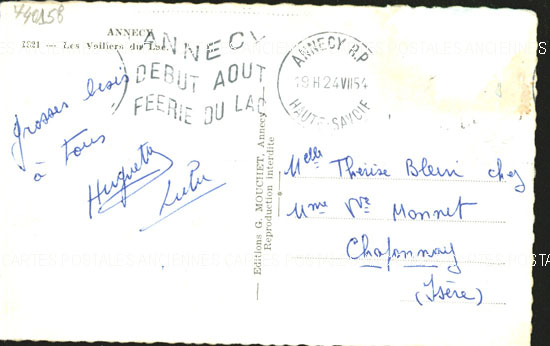 440158
ANNECY
1321 — Les Voiliers du Lac
ANNECY
DEBUT AOUT
FEERIE DU LAC
ANNECY R.P.
19H 24 VII 54
HAUTE-SAVOIE
grosses bises
à tous
Huguette
Lulu
Editions G. MOUCHET, Annecy
Reproduction interdite
Melle Thérèse Blein chez
Mme Vve Monnet
Chaponnay
(Isère)
CARTES POSTALES ANCIENNES CARTES POSTALES ANCIENNES